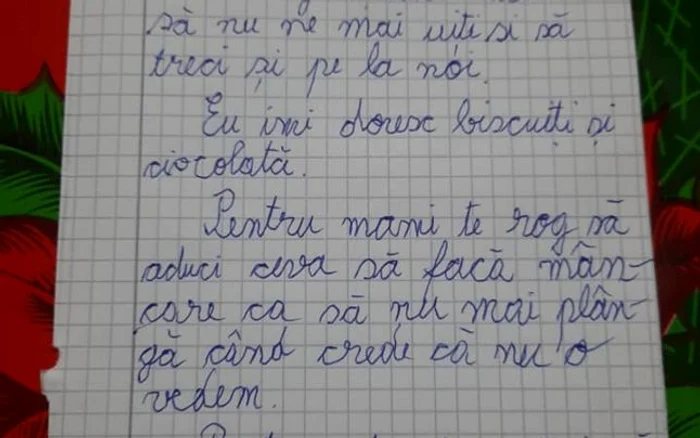 să nu ne mai uiti si să
treci și pe la noi.
Eu imi doresc biscuiți și
ciocolată.
Pentru mami te rog să
aduci ceva să facă mân-
care ca să nu mai plân-
gă când crede că nu o
vedem.